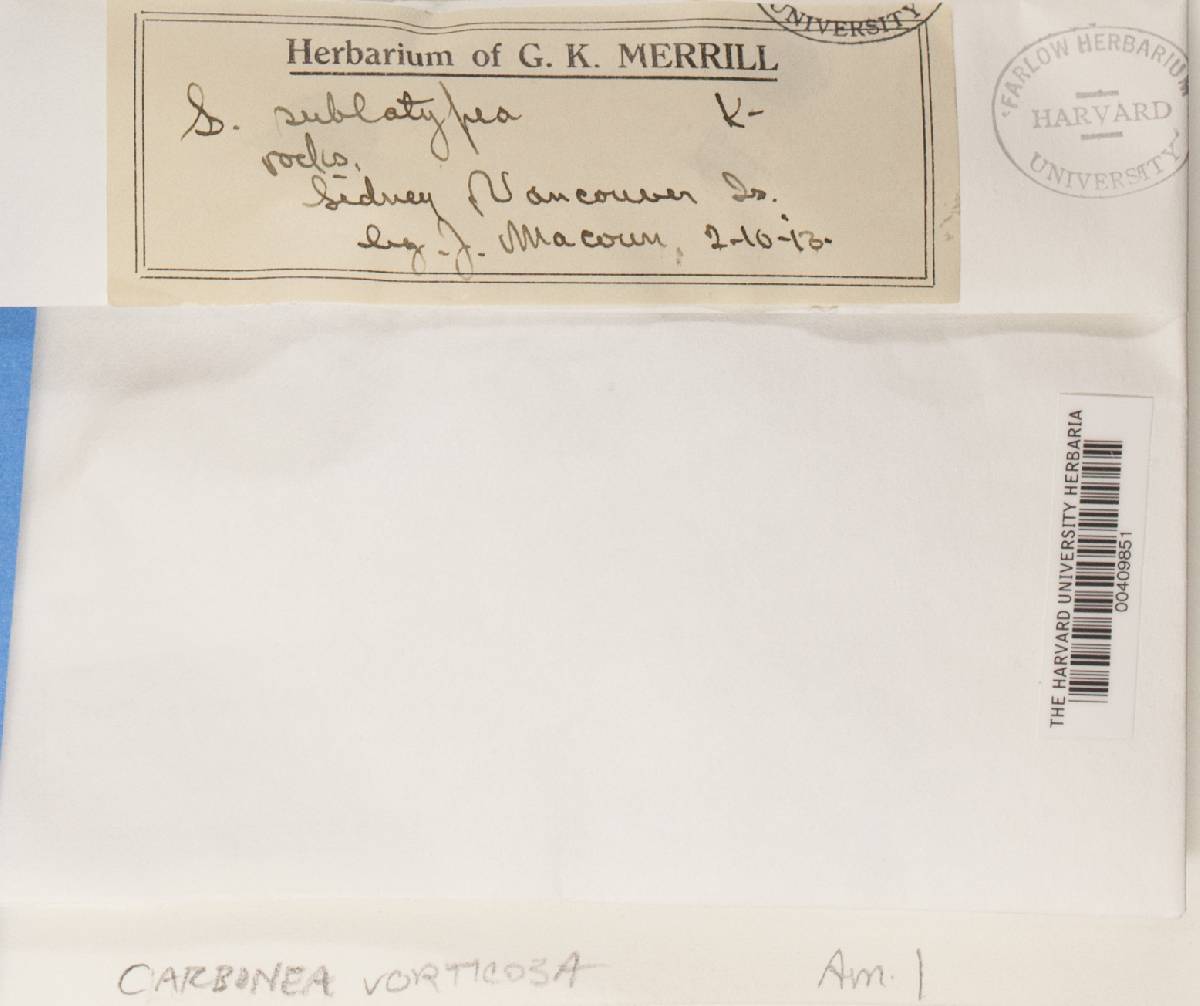 UNIVERSITY
Herbarium of G. K. MERRILL
L. sublatypea K-
rocks.
Sidney, Vancouver Is.
Leg. J. Macoun, 2-10-13.
FARLOW HERBARIUM
HARVARD
UNIVERSITY
THE HARVARD UNIVERSITY HERBARIA
00409851
CARBONEA VORTICOSA Am. 1